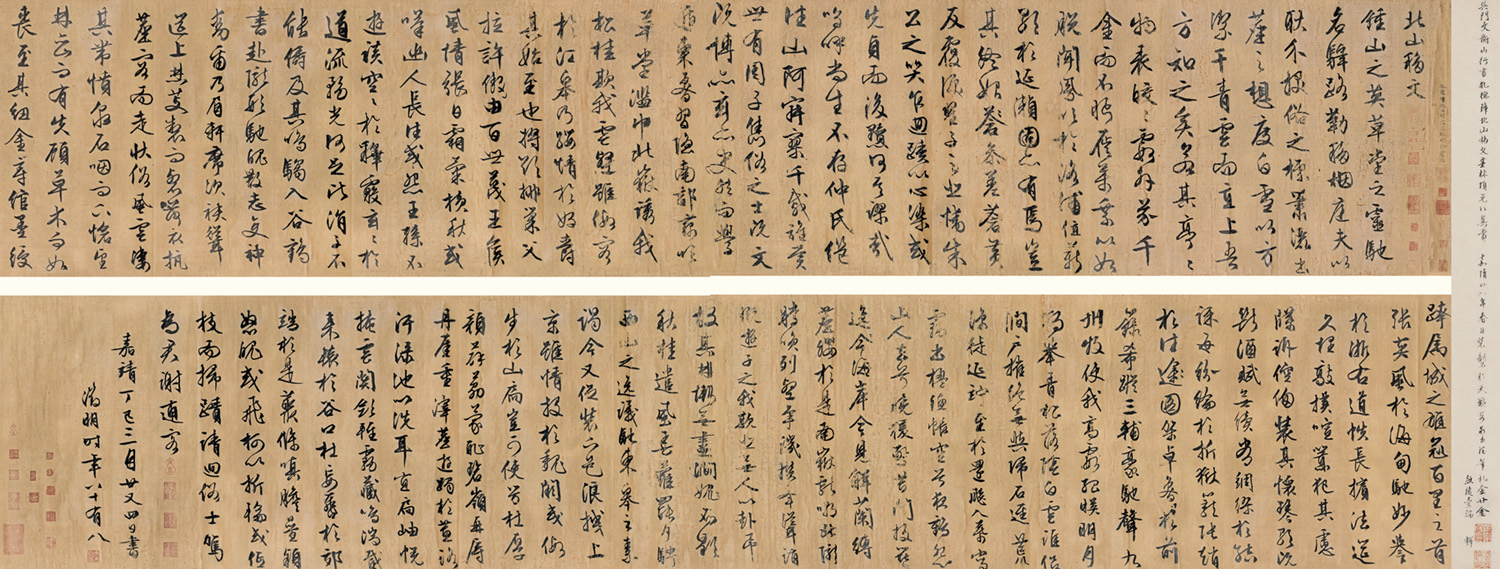 北山移文
鍾山之英草堂之靈馳
煙驛路勒移山庭夫以
耿介拔俗之標蕭灑出
塵之想度白雪以方
潔干青雲而直上吾
方知之矣若其亭亭
物表皎皎霞外芥千
金而不盼屣萬乘以如
脫聞鳳吹於洛浦值薪
歌於延瀨固亦有焉豈
其終始參差蒼黃
反覆淚翟子之悲慟朱
公之哭乍迴蹟以心染或
先貞而後黷何其謬哉
嗚呼尚生不存仲氏既
往山阿寂寥千載誰賞
世有周子雋俗之士既文
既博亦玄亦史然而學
遁東魯習隱南郭竊吹
草堂濫巾北嶽誘我
松桂欺我雲壑雖假容
於江皋乃纓情於好爵
其始至也將欲排巢父
拉許由傲百世蔑王侯
風情張日霜氣橫秋或
嘆幽人長往或怨王孫不
遊談空空於釋部覈玄玄於
道流務光何足比涓子不
能儔及其鳴騶入谷鶴
書赴隴形馳魄散志變神
動爾乃眉軒席次袂聳
筵上焚芰製而裂荷衣抗
塵容而走俗狀風雲悽
其帶憤泉石咽而下愴望
林巒而有失顧草木而如
喪至其紐金章綰墨綬
跨屬城之雄冠百里之首
張英風於海甸馳妙譽
於浙右道帙長擯法筵
久埋敲撲喧囂犯其慮
牒訴倥傯裝其懷琴歌既
斷酒賦無續常綢繆於結
課每紛綸於折獄籠張趙
於往圖架卓魯於前
籙希蹤三輔豪馳聲九
州牧使我高霞孤映明月
獨舉青松落陰白雲誰侶
澗戶摧絕無與歸石逕荒
涼徒延佇至於還飆入幕寫
霧出楹蕙帳空兮夜鶴怨
山人去兮曉猿驚昔聞投簪
逸海岸今見解蘭縛
塵纓於是南嶽獻嘲北隴
騰笑列壑爭譏攢峰竦誚
慨遊子之我欺悲無人以赴弔
故其林慚無盡澗愧不歇
秋桂遣風春蘿罷月騁
西山之逸議馳東皋之素
謁今又促裝下邑浪拽上
京雖情投於魏闕或假
步於山扃豈可使芳杜厚
顏薜荔蒙恥碧嶺再辱
丹崖重滓塵遊躅於蕙路
汙淥池以洗耳宜扃岫幌
掩雲關斂輕霧藏鳴湍截
來轅於谷口杜妄轡於郊
端於是叢條嗔膽疊穎
怒魄或飛柯以折輪或低
枝而掃蹟請迴俗士駕
為君謝逋客
嘉靖丁巳三月廿又四日書
徵明時年八十有八